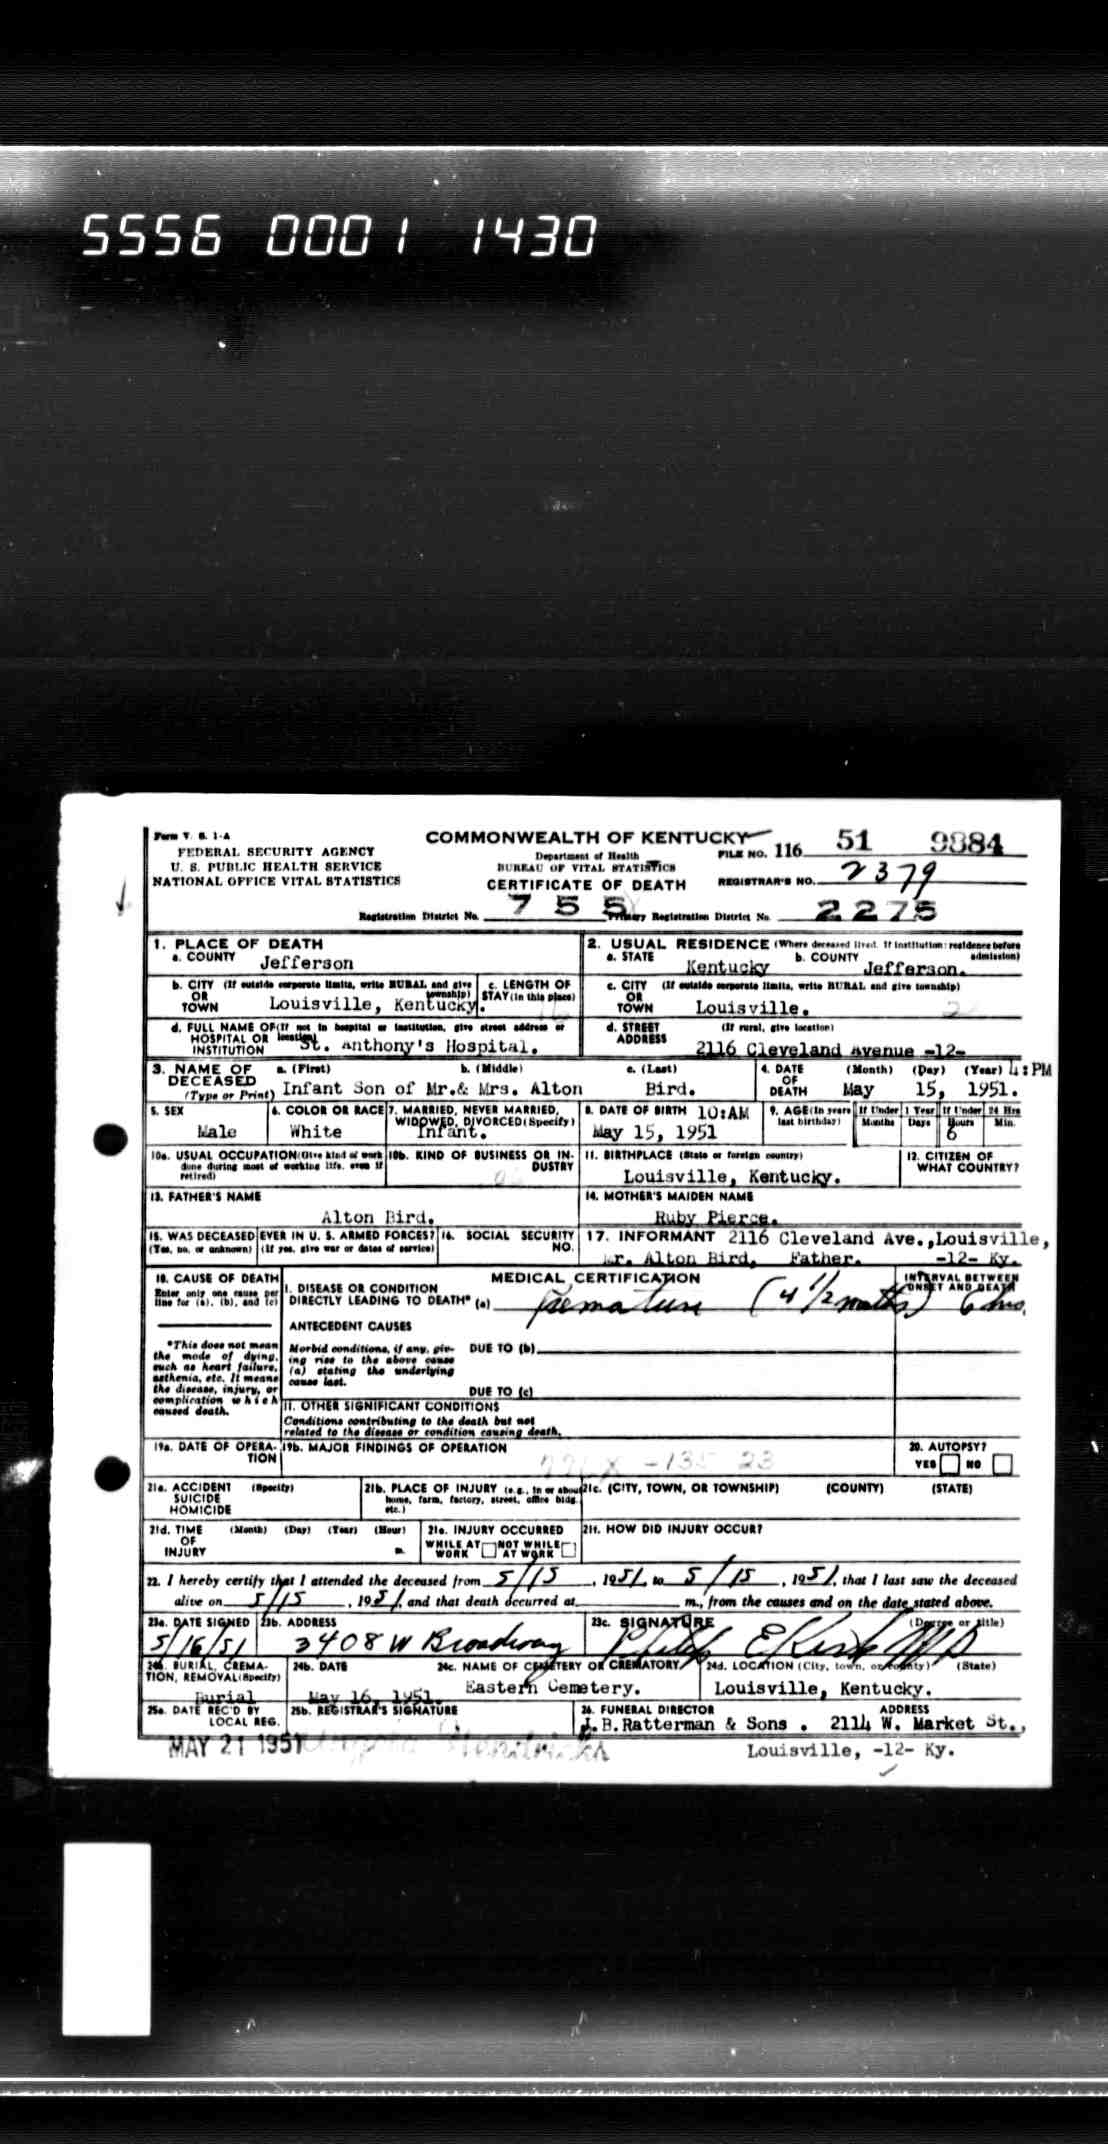 5556 0001 1430
Form V. S. 1-A
FEDERAL SECURITY AGENCY
U. S. PUBLIC HEALTH SERVICE
NATIONAL OFFICE VITAL STATISTICS
COMMONWEALTH OF KENTUCKY
Department of Health
BUREAU OF VITAL STATISTICS
CERTIFICATE OF DEATH
FILE NO. 116 51 9884
REGISTRAR'S NO. 2379
Registration District No. 755 Primary Registration District No. 2275
1. PLACE OF DEATH
a. COUNTY Jefferson
2. USUAL RESIDENCE (Where deceased lived. If institution: residence before admission)
a. STATE Kentucky b. COUNTY Jefferson.
b. CITY (If outside corporate limits, write RURAL and give township)
OR
TOWN Louisville, Kentucky.
c. LENGTH OF
STAY (in this place)
c. CITY (If outside corporate limits, write RURAL and give township)
OR
TOWN Louisville.
d. FULL NAME OF (If not in hospital or institution, give street address or location)
HOSPITAL OR
INSTITUTION St. Anthony's Hospital.
d. STREET (If rural, give location)
ADDRESS 2116 Cleveland Avenue -12-
3. NAME OF DECEASED (Type or Print)
a. (First) b. (Middle) c. (Last)
Infant Son of Mr.& Mrs. Alton Bird.
4. DATE OF DEATH (Month) (Day) (Year) 4:PM
May 15, 1951.
5. SEX
Male
6. COLOR OR RACE
White
7. MARRIED, NEVER MARRIED,
WIDOWED, DIVORCED (Specify)
Infant.
8. DATE OF BIRTH 10:AM
May 15, 1951
9. AGE (In years last birthday)
If Under 1 Year Months Days
If Under 24 Hrs Hours Min.
6
10a. USUAL OCCUPATION (Give kind of work done during most of working life, even if retired)
10b. KIND OF BUSINESS OR INDUSTRY
11. BIRTHPLACE (State or foreign country)
Louisville, Kentucky.
12. CITIZEN OF
WHAT COUNTRY?
13. FATHER'S NAME
Alton Bird.
14. MOTHER'S MAIDEN NAME
Ruby Pierce.
15. WAS DECEASED EVER IN U. S. ARMED FORCES?
(Yes, no, or unknown) (If yes, give war or dates of service)
16. SOCIAL SECURITY NO.
17. INFORMANT 2116 Cleveland Ave.,Louisville,
Mr. Alton Bird, Father. -12- Ky.
18. CAUSE OF DEATH
Enter only one cause per line for (a), (b), and (c)
MEDICAL CERTIFICATION
INTERVAL BETWEEN
ONSET AND DEATH
I. DISEASE OR CONDITION
DIRECTLY LEADING TO DEATH* (a) Premature (4 1/2 months) 6 hrs.
*This does not mean
the mode of dying,
such as heart failure,
asthenia, etc. It means
the disease, injury, or
complication which
caused death.
ANTECEDENT CAUSES
Morbid conditions, if any, giv-
ing rise to the above cause
(a) stating the underlying
cause last.
DUE TO (b)
DUE TO (c)
II. OTHER SIGNIFICANT CONDITIONS
Conditions contributing to the death but not
related to the disease or condition causing death.
19a. DATE OF OPERA-
TION
19b. MAJOR FINDINGS OF OPERATION
-135 23
20. AUTOPSY?
YES NO
21a. ACCIDENT (Specify)
SUICIDE
HOMICIDE
21b. PLACE OF INJURY (e.g., in or about
home, farm, factory, street, office bldg.
etc.)
21c. (CITY, TOWN, OR TOWNSHIP) (COUNTY) (STATE)
21d. TIME (Month) (Day) (Year) (Hour)
OF
INJURY m.
21e. INJURY OCCURRED
WHILE AT WORK NOT WHILE AT WORK
21f. HOW DID INJURY OCCUR?
22. I hereby certify that I attended the deceased from 5/15, 1951, to 5/15, 1951, that I last saw the deceased
alive on 5/15, 1951, and that death occurred at m., from the causes and on the date stated above.
23a. DATE SIGNED
5/16/51
23b. ADDRESS
3408 W Broadway
23c. SIGNATURE (Degree or title)
24a. BURIAL, CREMA-
TION, REMOVAL (Specify)
Burial
24b. DATE
May 16, 1951.
24c. NAME OF CEMETERY OR CREMATORY
Eastern Cemetery.
24d. LOCATION (City, town, or county) (State)
Louisville, Kentucky.
25a. DATE REC'D BY
LOCAL REG.
MAY 21 1951
25b. REGISTRAR'S SIGNATURE
26. FUNERAL DIRECTOR ADDRESS
J.B.Ratterman & Sons . 2114 W. Market St.,
Louisville, -12- Ky.